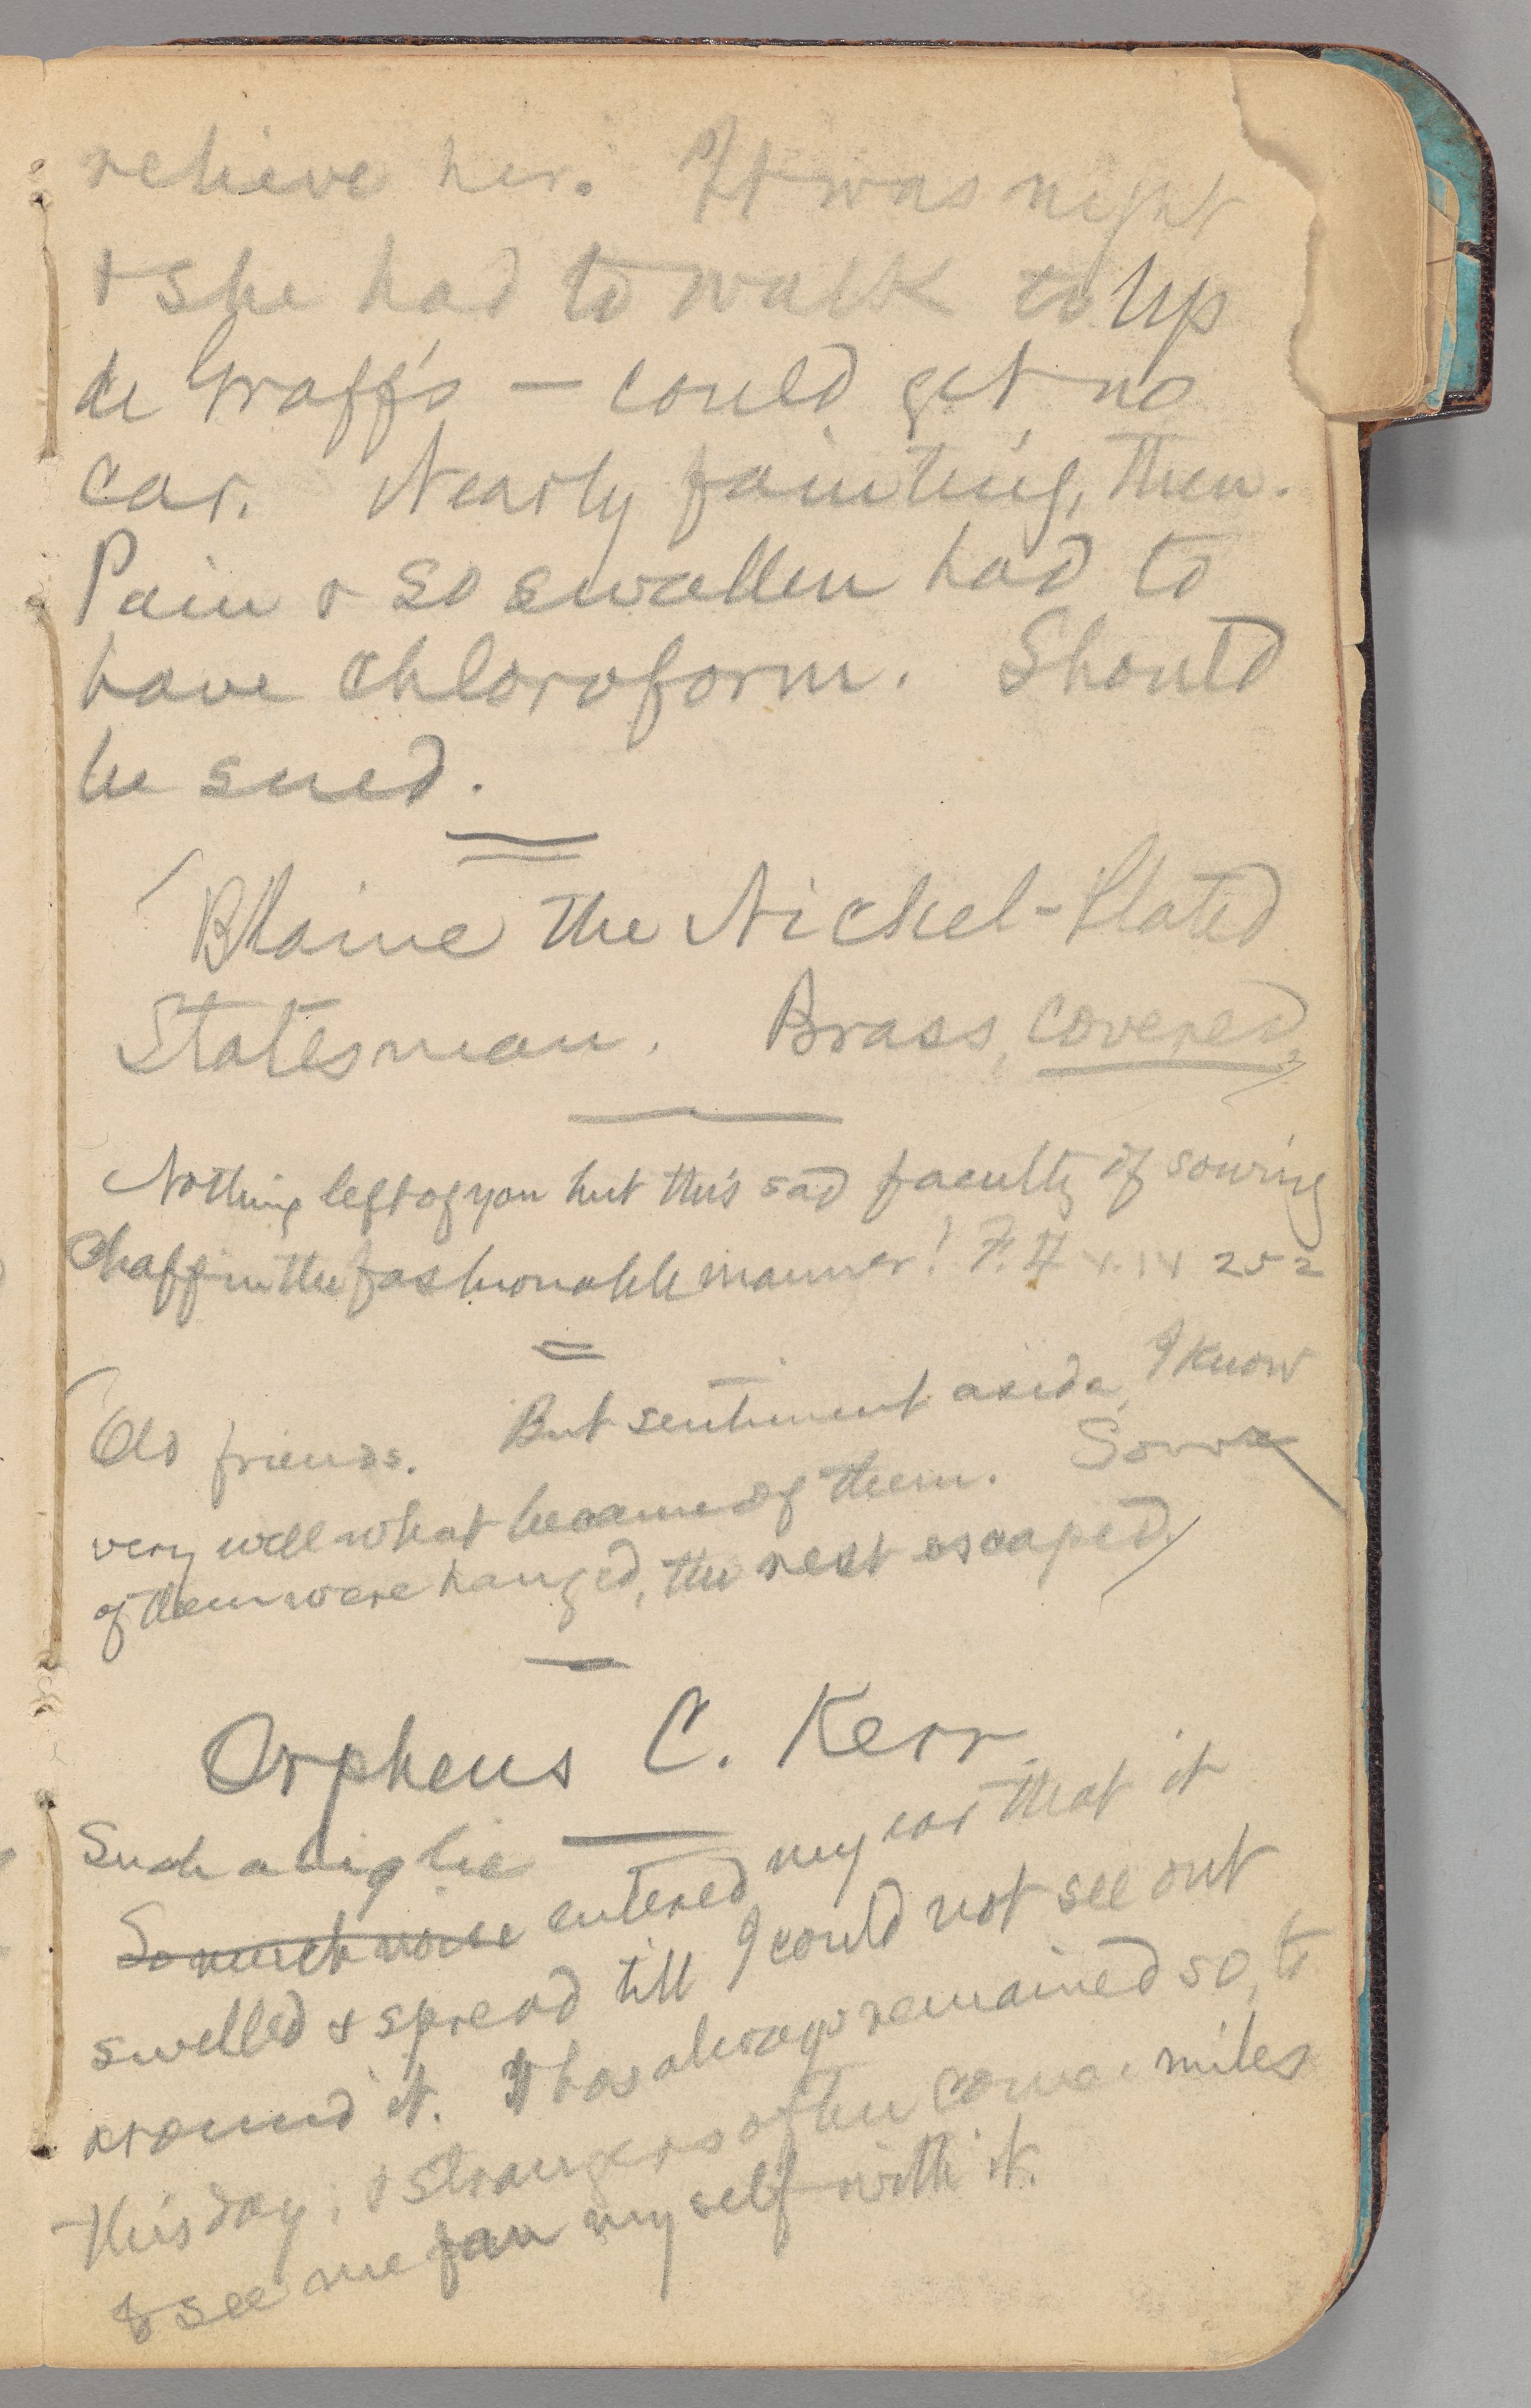 relieve her. It was night
& she had to walk to up
de Graff's — could get no
car. Nearly fainting, then.
Pain & so swollen had to
have chloroform. Should
be sued.
Blaine the Nickel-Plated
Statesman. Brass, covered.
Nothing left of you but this sad faculty of sowing
chaff in the fashionable manner! F. 252
Old friends. But sentiment aside, I know
very well what became of them. Some
of them were hanged, the rest escaped.
Orpheus C. Kerr
Such a big lie
So much noise entered my ear that it
swelled & spread till I could not see out
around it. It has always remained so, to
this day; & strangers often come miles
& see me fan myself with it.